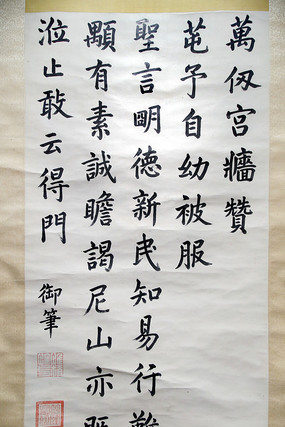 萬仭宮牆贊
芚予自幼被服
聖言明德新民知易行難
顒有素誠瞻謁尼山亦既
涖止敢云得門
御筆